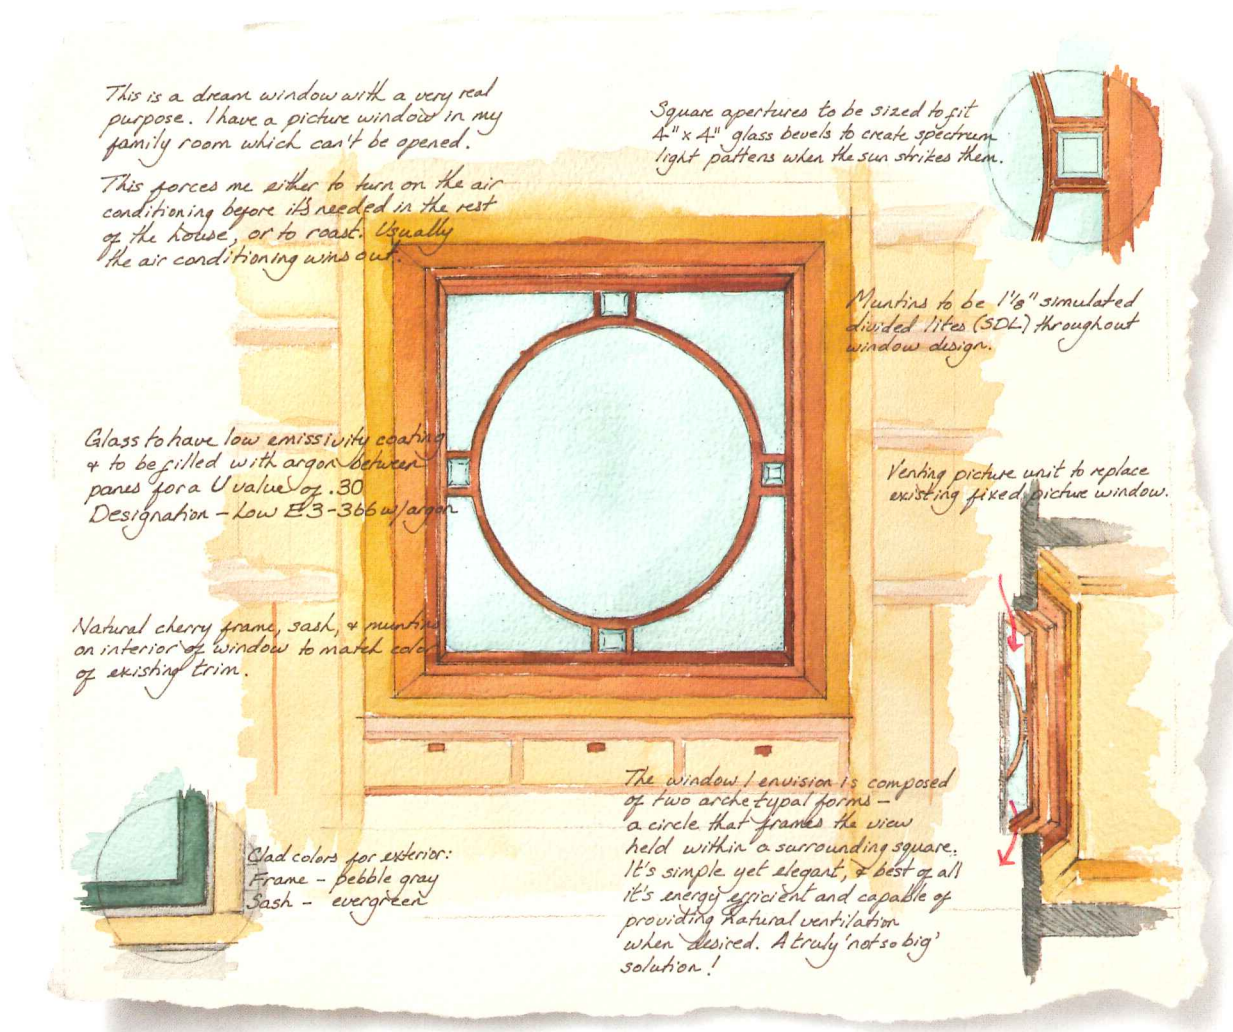 This is a dream window with a very real
purpose. I have a picture window in my
family room which can't be opened.
This forces me either to turn on the air
conditioning before it's needed in the rest
of the house, or to roast. Usually
the air conditioning wins out.
Square apertures to be sized to fit
4" x 4" glass bevels to create spectrum
light pattens when the sun strikes them.
Muntins to be 1 1/8" simulated
divided lites (SDL) throughout
window design.
Glass to have low emissivity coating
& to be filled with argon between
panes for a U value of .30
Designation - Low E3-366 w/argon
Venting picture unit to replace
existing fixed picture window.
Natural cherry frame, sash, & muntins
on interior of window to match color
of existing trim.
The window I envision is composed
of two archetypal forms -
a circle that frames the view
held within a surrounding square.
It's simple yet elegant, & best of all
it's energy efficient and capable of
providing natural ventilation
when desired. A truly 'not so big'
solution!
Clad colors for exterior:
Frame - pebble gray
Sash - evergreen